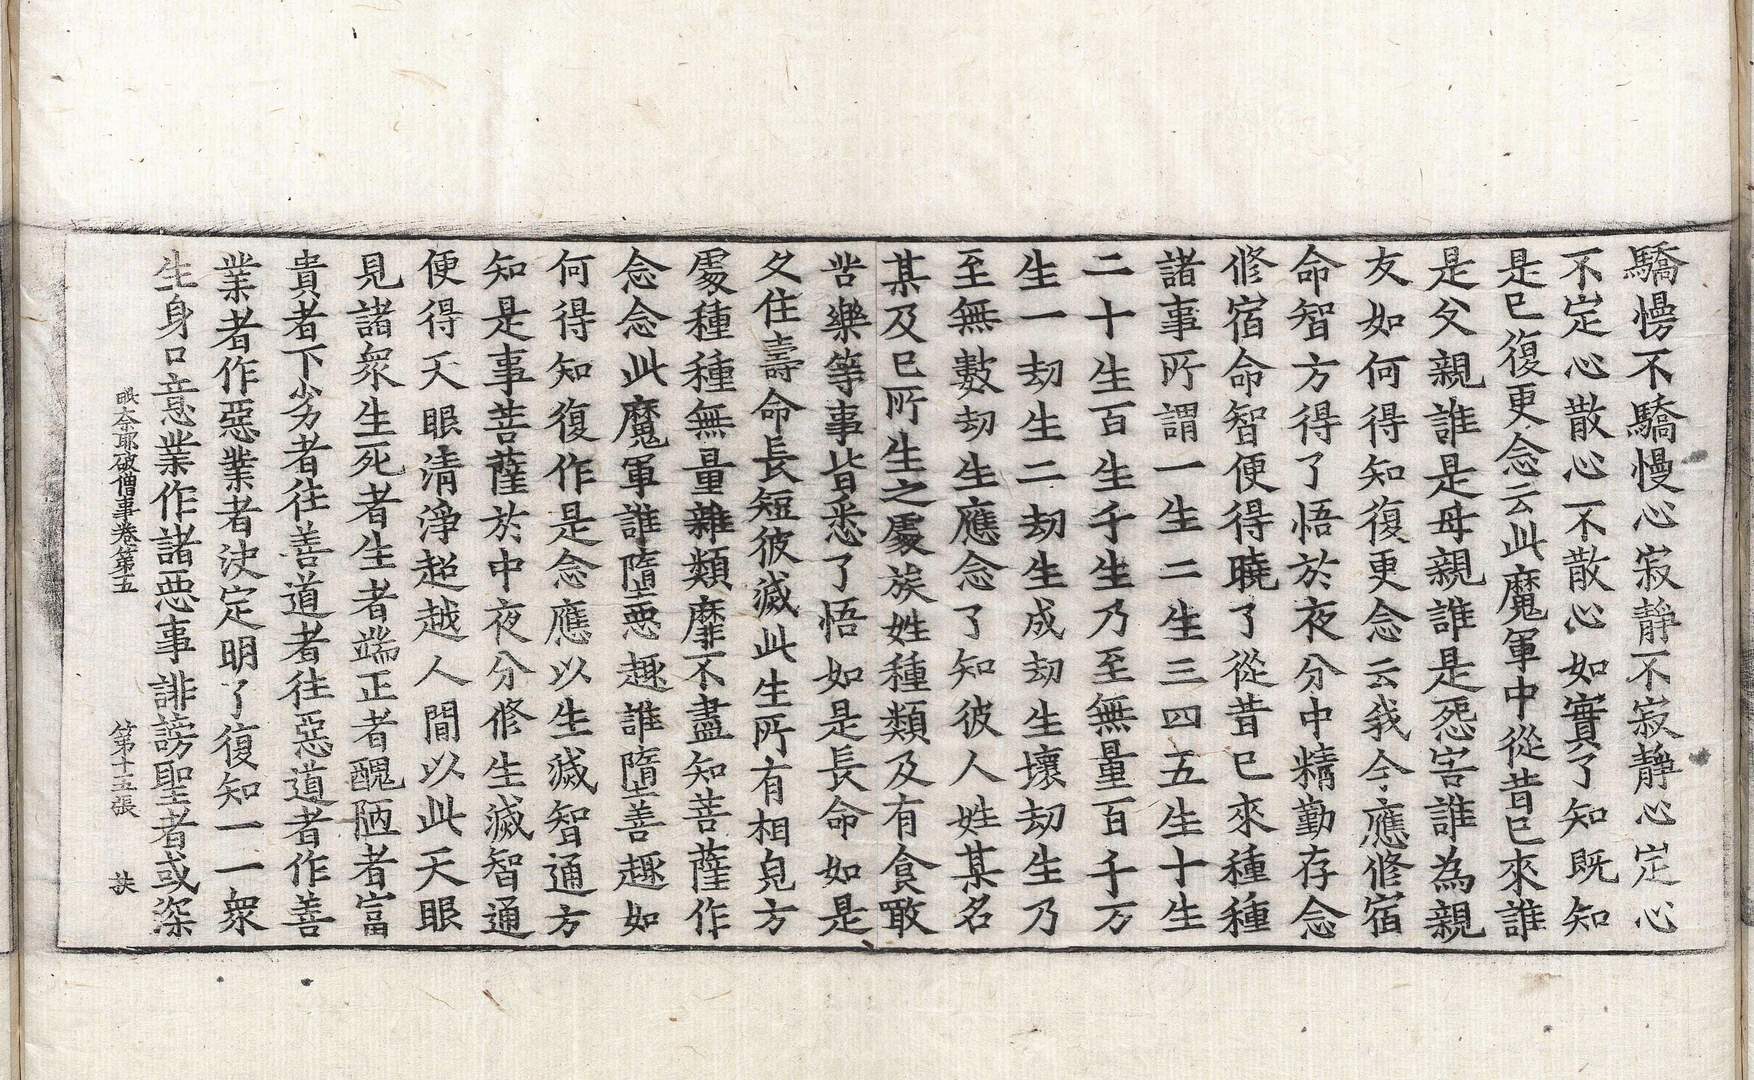 驕慢不驕慢心寂靜不寂靜心定心
不定心散心不散心如實了知既知
是已復更念云此魔軍中從昔已來誰
是父親誰是母親誰是怨害誰為親
友如何得知復更念云我今應修宿
命智方得了悟於夜分中精勤存念
修宿命智便得曉了從昔已來種種
諸事所謂一生二生三四五生十生
二十生百生千生乃至無量百千万
生一劫生二劫生成劫生壞劫生乃
至無數劫生應念了知彼人姓某名
某及已所生之處族姓種類及有食噉
苦樂等事皆悉了悟如是長命如是
久住壽命長短彼滅此生所有相皃方
處種種無量雜類靡不盡知菩薩作
念念此魔軍誰墮惡趣誰墮善趣如
何得知復作是念應以生滅智通方
知是事菩薩於中夜分修生滅智通
便得天眼清淨超越人間以此天眼
見諸衆生死者生者端正者醜陋者富
貴者下劣者往善道者往惡道者作善
業者作惡業者決定明了復知一一衆
生身口意業作諸惡事誹謗聖者或深
奈耶破僧事卷第五 第十五張